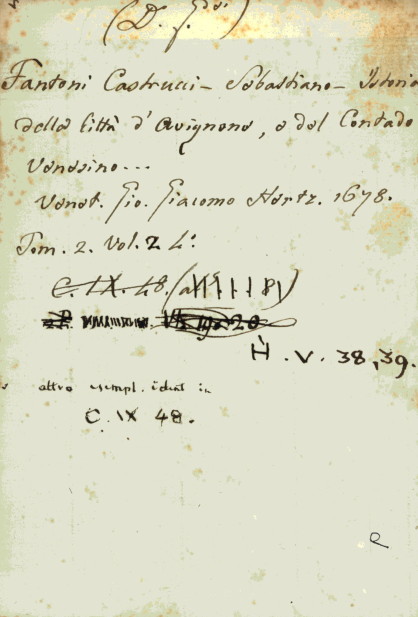 Fantoni Castrucci - Sebastiano - Istoria
della Città d'Avignone, e del Contado
Venesino...
Venet. Gio. Giacomo Hertz. 1678.
Tom. 2. Vol. 2 4°.
C. IX. 48.
H. V. 38, 39.
altro esempl. ident in
C. IX 48.